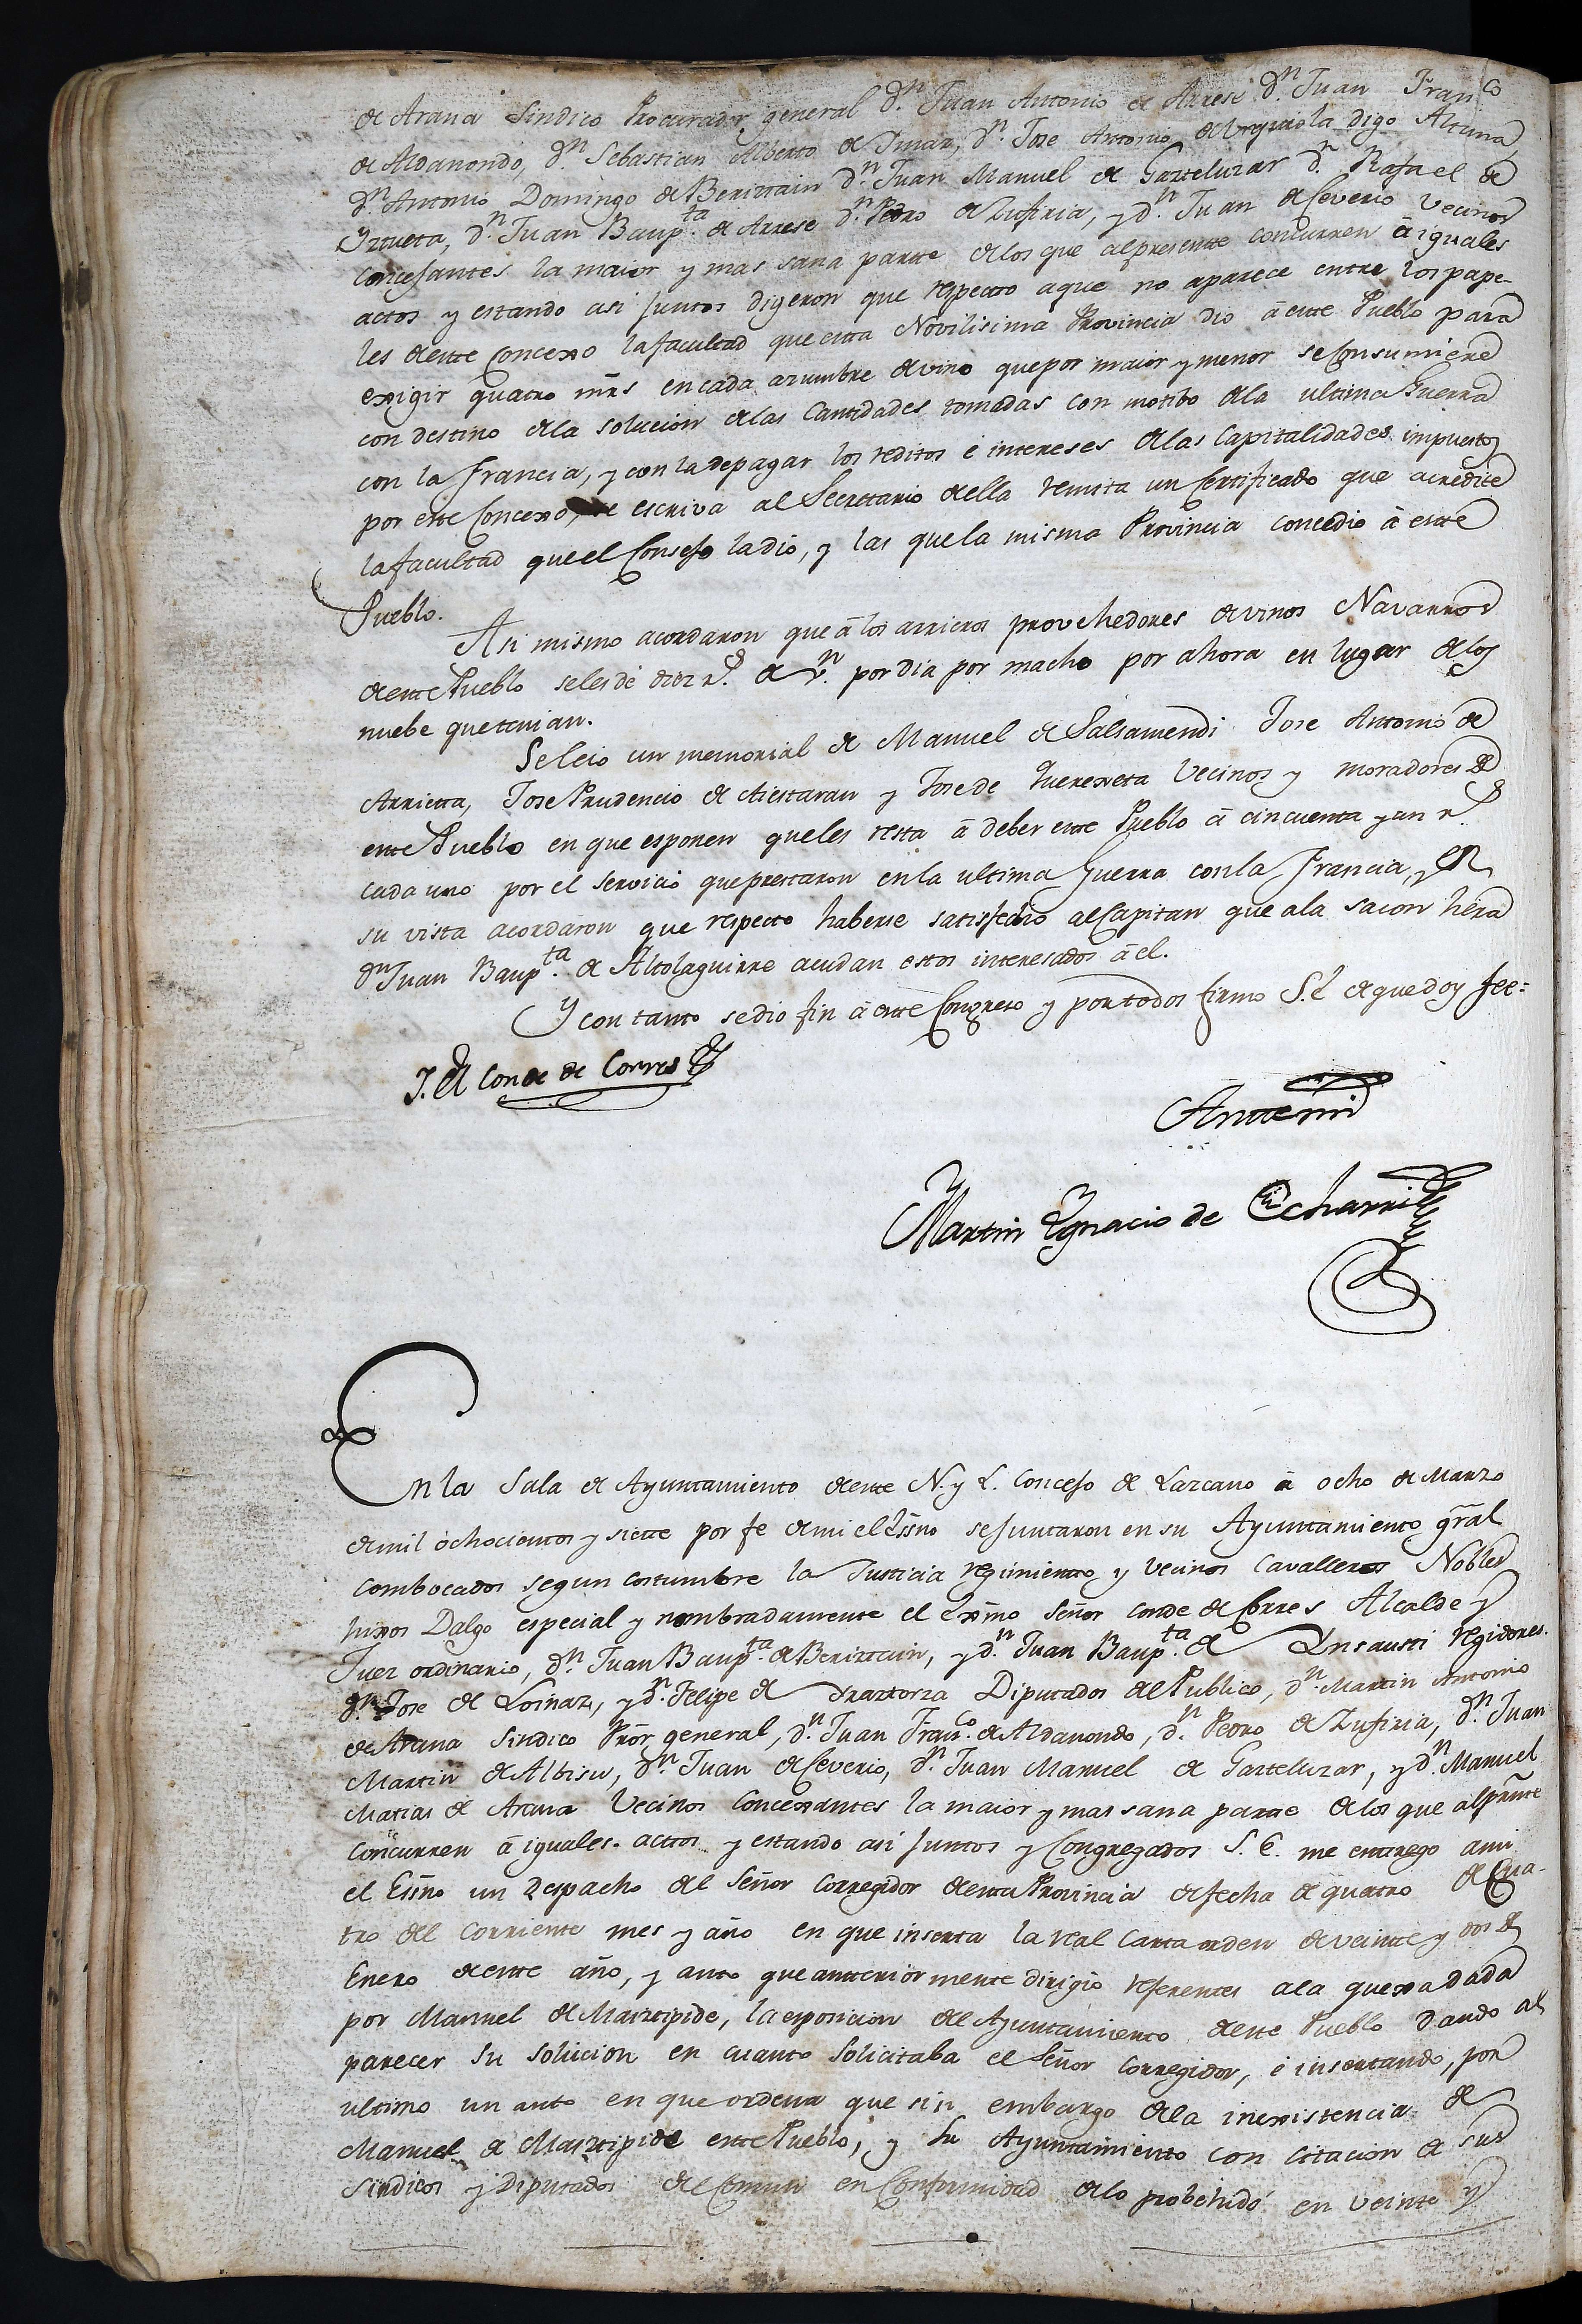 de Arana Sindico Procurador general Dn. Juan Antonio de Arrese Dn. Juan Franco
de Aldanondo, Dn. Sebastian Alberto de Imaz, Dn. Jose Antonio de Urquiola digo Altuna
Dn. Antonio Domingo de Beriztain Dn. Juan Manuel de Gazteluzar Dn. Rafael de
Yztueta, Dn. Juan Baupta. de Arrese Dn. Pedro de Zufiria, y dn. Juan de Ceverio Vecinos
concejantes la maior y mas sana parte de los que alpresente concurren á iguales
actos y estando asi juntos digeron que respecto aque no aparece entre los pape-
les deeste Concexo lafacultad que esta Nobilisima Provincia dio á este Pueblo para
exigir quatro mrs en cada azumbre devino quepor maior y menor seConsumiere
con destino dela solucion delas Cantidades tomadas con motibo dela ultima Guerra
con la Francia, y con la depagar los reditos é intereses delas Capitalidades impuestos
por este Concexo, se escriva al Secretario della remita un Certificado que acredite
lafacultad queel Consejo ladio, y las quela misma Provincia concedio á este
Pueblo.
Asi mismo acordaron que á los arrieros provehedores devinos Navarros
deeste Pueblo selesdé diez rs. de vn. por dia por macho por ahora en lugar delos
nuebe quetenian.
Seleio un memorial de Manuel de Salsamendi Jose Antonio de
Arrieta, Jose Prudencio de Aiestaran y Jose de Querexeta Vecinos y moradores de
este Pueblo en que esponen queles resta á deber este Pueblo á cincuenta y un rs.
cada uno por el servicio queprestaron enla ultima Guerra conla Francia, y en
su vista acordaron que respecto haberse satisfecho alCapitan que ala sacon hera
Dn Juan Baupta. de Altolaguirre acudan estos interesados á el.
Y con tanto sedio fin á este Congreso y portodos firmo S.E. de quedoy fee=
J. El Conde de Corres
Antemi
Martin Ygnacio de Echarri
En la Sala de Ayuntamiento deeste N. y L. Concejo de Lazcano á ocho de Marzo
demil ochocientos y siete por fe demi elEssno sejuntaron en su Ayuntamiento gral
combocados segun costumbre la Justicia regimiento y Vecinos Cavalleros Nobles
hixos Dalgo especial y nombradamente el Exmo Señor Conde de Corres Alcalde y
Juez ordinario, dn. Juan Baupta. de Beriztain, y dn. Juan Baupta. de Ynsausti regidores.
dn. Jose de Loinaz, y dn. Felipe de Yraztorza Diputados del Publico, dn. Martin Antonio
de Arana Sindico Pror general, dn. Juan Franco. de Aldanondo, dn. Pedro de Zufiria, dn. Juan
Martin de Albisu, dn. Juan de Ceverio, dn. Juan Manuel de Gaztelluzar, y dn. Manuel
Matias de Arana Vecinos Concexantes la maior y mas sana parte delos que alprnte
concurren á iguales. actos y estando asi juntos y Congregados S. E. me entrego ami
el Essno un Despacho del Señor Corregidor deesta Provincia defecha de quatro de Cua-
tro del Corriente mes y año en que inserta la real Carta orden deveinte y dos de
Enero deeste año, y auto que anteriormente dirigio referentes ala quexa dada
por Manuel de Maiztipide, la esposicion del Ayuntamiento deeste Pueblo dando al
parecer su solucion en cuanto solicitaba el Señor Corregidor, é insertando, por
ultimo un auto en que ordena que sin embargo dela inexistencia de
Manuel de Maiztipide este Pueblo, y su Ayuntamiento con citacion de sus
Sindicos y Diputados del Comun en Conformidad delo probehido en veinte y